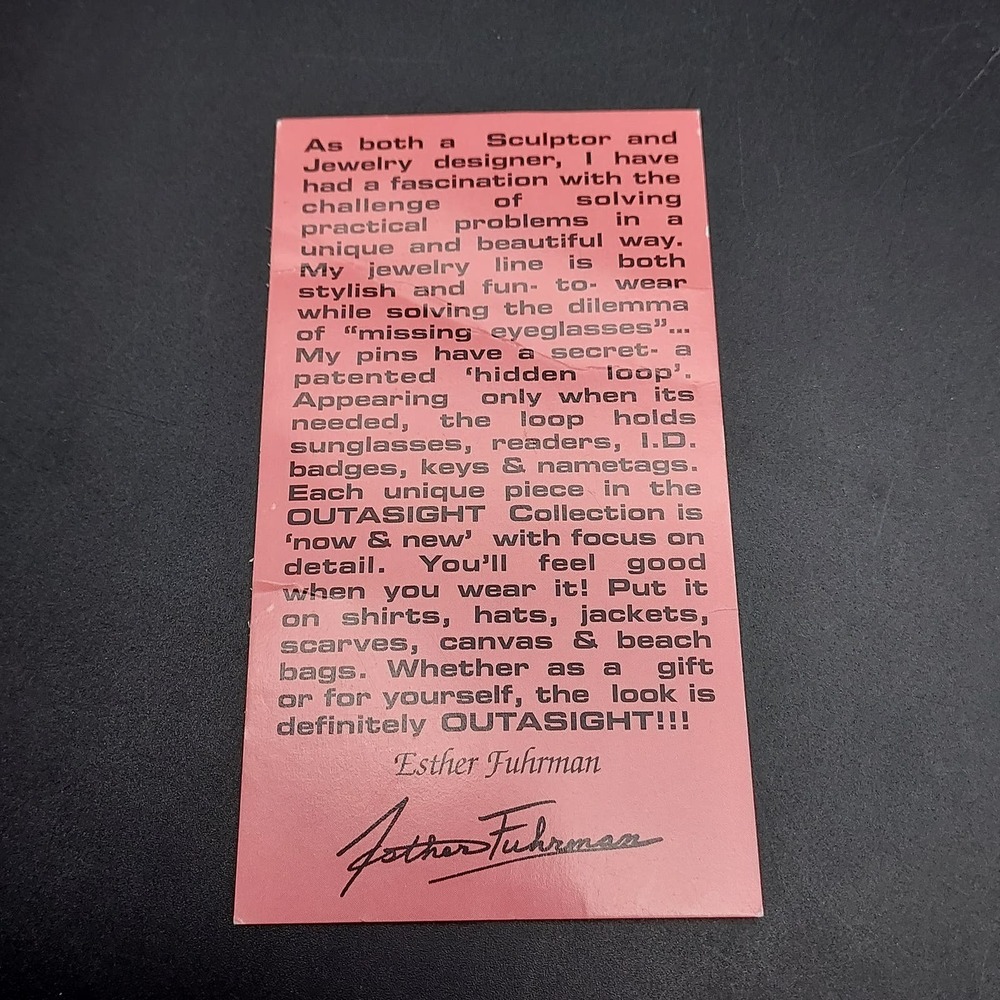 As both a Sculptor and
Jewelry designer, I have
had a fascination with the
challenge of solving
practical problems in a
unique and beautiful way.
My jewelry line is both
stylish and fun- to- wear
while solving the dilemma
of “missing eyeglasses”...
My pins have a secret- a
patented ‘hidden loop’.
Appearing only when its
needed, the loop holds
sunglasses, readers, I.D.
badges, keys & nametags.
Each unique piece in the
OUTASIGHT Collection is
‘now & new’ with focus on
detail. You’ll feel good
when you wear it! Put it
on shirts, hats, jackets,
scarves, canvas & beach
bags. Whether as a gift
or for yourself, the look is
definitely OUTASIGHT!!!
Esther Fuhrman
Esther Fuhrman